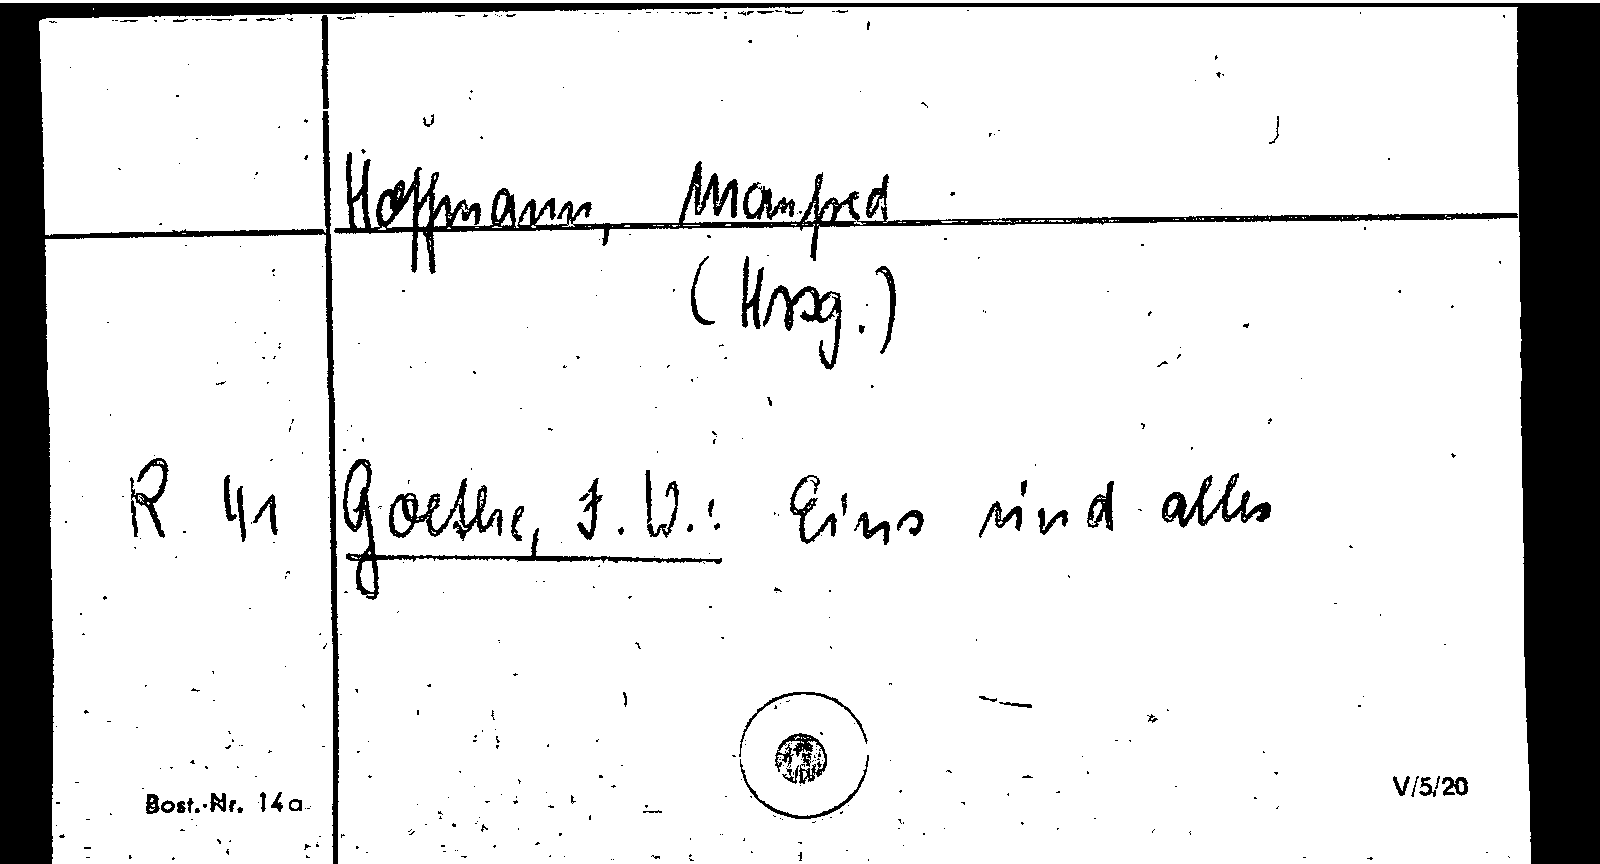 Hoffmann, Manfred
(Hrsg.)
R 41 Goethe, J. W.: Eins und alles
Best.-Nr. 14a
V/5/20